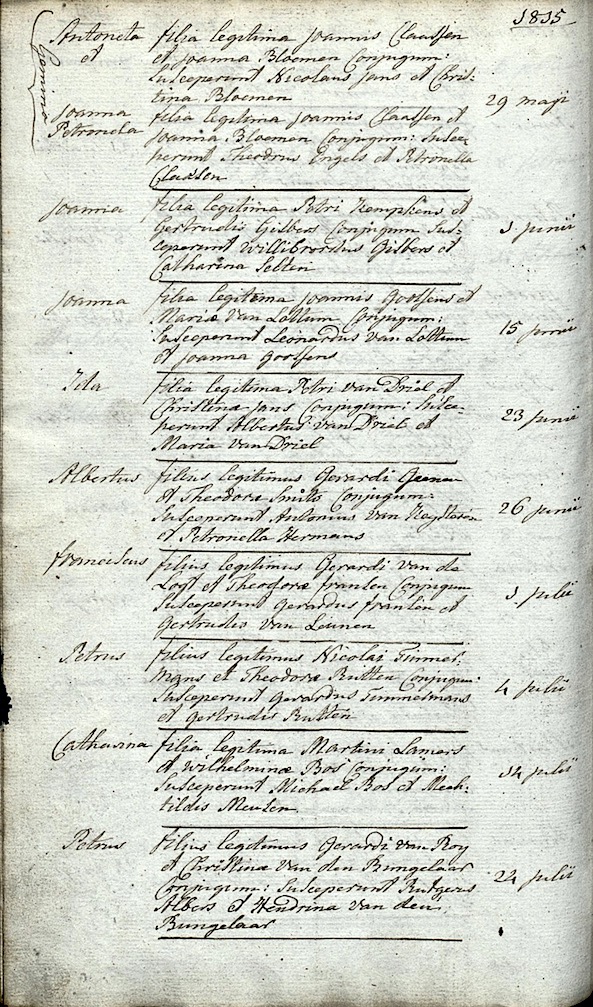 1815
Antoneta filia legitima Joannis Claassen
et et Joanna Bloemen Conjugum:
Gemina Susceperunt Nicolaus Jans et Chris:
tina Bloemen 29 maji
Joanna filia legitima Joannis Claassen et
Petroneta Joanna Bloemen Conjugum: Susce-
perunt Theodorus Engels et Petronella
Claasen
Joanna filia legitima Petri Kempkens et
Gertrudis Gisbers Conjugum Sus- junii
ceperunt Willibrordus Gisbers et
Catharina Selten
Joanna filia legitima Joannis Goossens et
Mariæ van Lottum Conjugum:
Susceperunt Leonardus van Lottum 15 junii
et Joanna Goossens
Ida filia legitima Petri van Driel et
Christina Jans Conjugum: Susce-
perunt Albertus van Driel et 23 junii
Maria van Driel
Albertus filius legitimus Gerardi Geenen
et Theodora Smitts Conjugum:
Susceperunt Antonius van 26 junii
et Petronella Hermans
franciscus filius legitimus Gerardi van de
Logt et Theodoræ franken Conjugum
Susceperunt Gerardus franken et julii
Gertrudis van Leunen
Petrus filius legitimus Nicolai Timmer:
mans et Theodoræ Rutten Conjugum:
Susceperunt Gerardus Timmermans 4 julii
et Gertrudis Rutten
Catharina filia legitima Martini Lamers
et Wilhelminæ Bos Conjugum:
Susceperunt Michael Bos et Mech- 14 julii
tildis Meusen
Petrus filius legitimus Gerardi van Roy
et Christinæ van den Bungelaar
Conjugum: Susceperunt Rutgerus 22 julii
Albers et Hendrina van den
Bungelaar